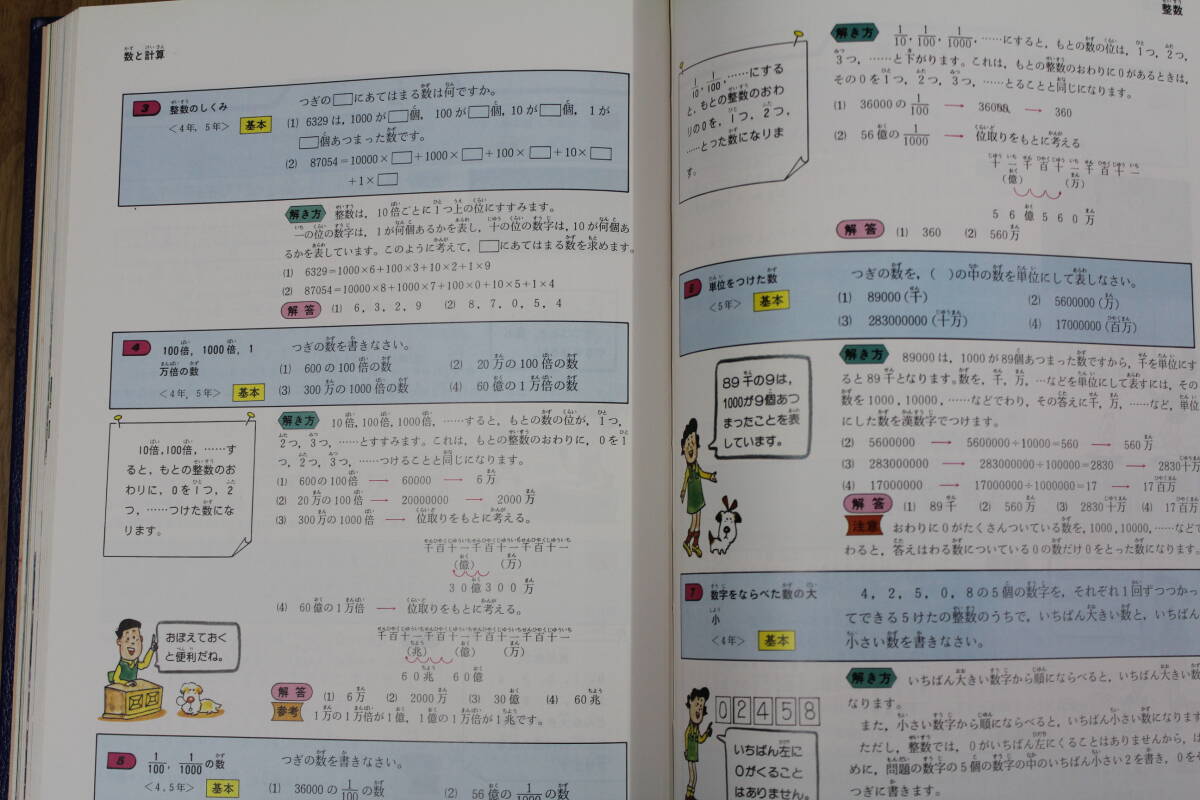 数と計算
3 整数のしくみ
<4年, 5年> 基本
つぎの□にあてはまる数は何ですか。
(1) 6329は, 1000が□個, 100が□個, 10が□個, 1が
□個あつまった数です。
(2) 87054=10000×□+1000×□+100×□+10×□
+1×□
解き方 整数は, 10倍ごとに1つ上の位にすすみます。
一の位の数字は, 1が何個あるかを表し, 十の位の数字は, 10が何個あ
るかを表しています。このように考えて, □にあてはまる数を求めます。
(1) 6329=1000×6+100×3+10×2+1×9
(2) 87054=10000×8+1000×7+100×0+10×5+1×4
解答 (1) 6, 3, 2, 9 (2) 8, 7, 0, 5, 4
4 100倍, 1000倍, 1
万倍の数
<4年, 5年> 基本
つぎの数を書きなさい。
(1) 600の100倍の数 (2) 20万の100倍の数
(3) 300万の1000倍の数 (4) 60億の1万倍の数
10倍, 100倍, ……す
ると, もとの整数のお
わりに, 0を1つ, 2
つ, ……つけた数にな
ります。
解き方 10倍, 100倍, 1000倍, ……すると, もとの数の位が, 1つ,
2つ, 3つ, ……とすすみます。これは, もとの整数のおわりに, 0を1
つ, 2つ, 3つ, ……つけることと同じになります。
(1) 600の100倍 → 60000 → 6万
(2) 20万の100倍 → 20000000 → 2000万
(3) 300万の1000倍 → 位取りをもとに考える。
千百十一千百十一千百十一
(億) (万)
30億300万
(4) 60億の1万倍 → 位取りをもとに考える。
千百十一千百十一千百十一千百十一
(兆) (億) (万)
60兆 60億
おぼえておく
と便利だね。
解答 (1) 6万 (2) 2000万 (3) 30億 (4) 60兆
参考 1万の1万倍が1億, 1億の1万倍が1兆です。
5 1/100, 1/1000の数
<4, 5年> 基本
つぎの数を書きなさい。
(1) 36000の1/100の数 (2) 56億の1/1000の数
整数
1/10, 1/100, ……にする
と, もとの整数のおわ
りの0を, 1つ, 2つ,
……とった数になりま
す。
解き方 1/10, 1/100, 1/1000, ……にすると, もとの数の位は, 1つ, 2つ,
3つ, ……と下がります。これは, もとの整数のおわりに0があるときは,
その0を1つ, 2つ, 3つ, ……とることと同じになります。
(1) 36000の1/100 → 36000 → 360
(2) 56億の1/1000 → 位取りをもとに考える
十一千百十一千百十一
(億) (万)
56億560万
解答 (1) 360 (2) 560万
6 単位をつけた数
<5年> 基本
つぎの数を, ( )の中の数を単位にして表しなさい。
(1) 89000(千) (2) 5600000(万)
(3) 283000000(十万) (4) 17000000(百万)
89千の9は,
1000が9個あつ
まったことを表
しています。
解き方 89000は, 1000が89個あつまった数ですから, 千を単位にす
ると89千となります。数を, 千, 万, …などを単位にして表すには, その
数を1000, 10000, ……などでわり, その答えに千, 万, ……など, 単位
にした数を漢数字でつけます。
(2) 5600000 → 5600000÷10000=560 → 560万
(3) 283000000 → 283000000÷100000=2830 → 2830十万
(4) 17000000 → 17000000÷1000000=17 → 17百万
解答 (1) 89千 (2) 560万 (3) 2830十万 (4) 17百万
注意 おわりに0がたくさんついている数を, 1000, 10000, ……などで
わると, 答えはわる数についている0の数だけ0をとった数になります。
7 数字をならべた数の大
小
<4年> 基本
4, 2, 5, 0, 8の5個の数字を, それぞれ1回ずつつかっ
てできる5けたの整数のうちで, いちばん大きい数と, いちばん
小さい数を書きなさい。
02458
いちばん左に
0がくること
はありません。
解き方 いちばん大きい数字から順にならべると, いちばん大きい数
なります。
また, 小さい数字から順にならべると, いちばん小さい数になります
ただし, 整数では, 0がいちばん左にくることはありませんから, は
めに, 問題の数字の5個の数字の中のいちばん小さい2を書き, 0をそ
つぎに書きます。